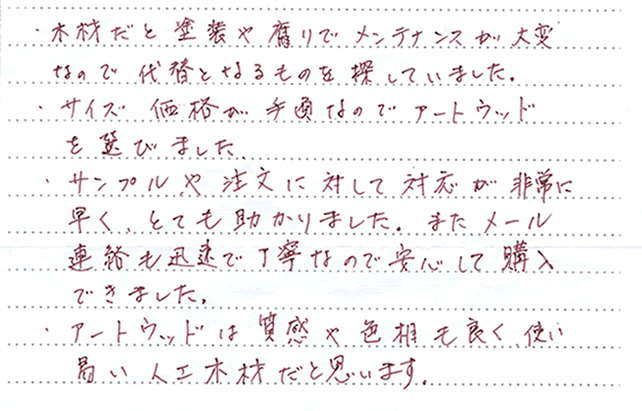 ・木材だと塗装や腐りでメンテナンスが大変
なので代替となるものを探していました。
・サイズ 価格が手頃なのでアートウッド
を選びました
・サンプルや注文に対して対応が非常に
早く、とても助かりました。またメール
連絡も迅速で丁寧なので安心して購入
できました。
・アートウッドは質感や色相も良く使い
易い人工木材だと思います。